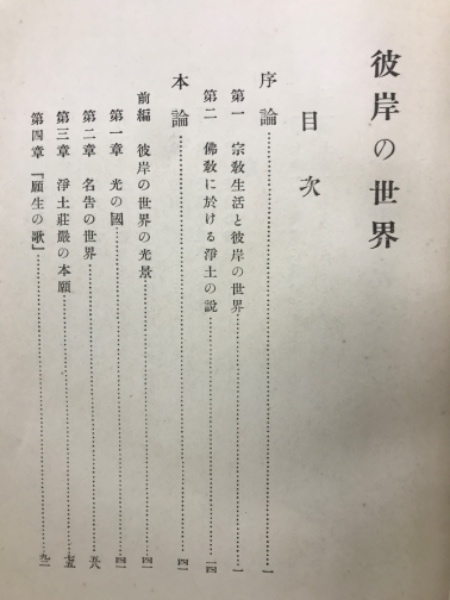 彼岸の世界
目次
序論……一
第一 宗教生活と彼岸の世界……一
第二 佛教に於ける淨土の說……一四
本論……四一
前編 彼岸の世界の光景……四一
第一章 光の國……四一
第二章 名告の世界……五八
第三章 淨土莊嚴の本願……七五
第四章 『願生の歌』……九二